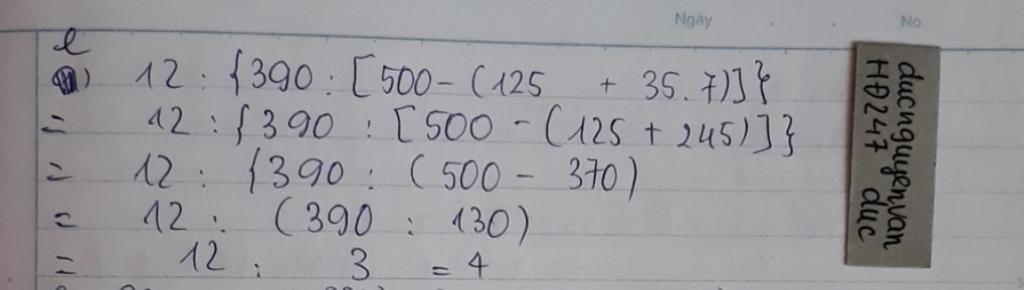 Ngày . . No.
e
) 12 : {390 : [500 - (125 + 35.7)]}
= 12 : {390 : [500 - (125 + 245)]}
= 12 : {390 : (500 - 370)
= 12 : (390 : 130)
= 12 : 3 = 4
ducnguyenvan
HĐ247 duc